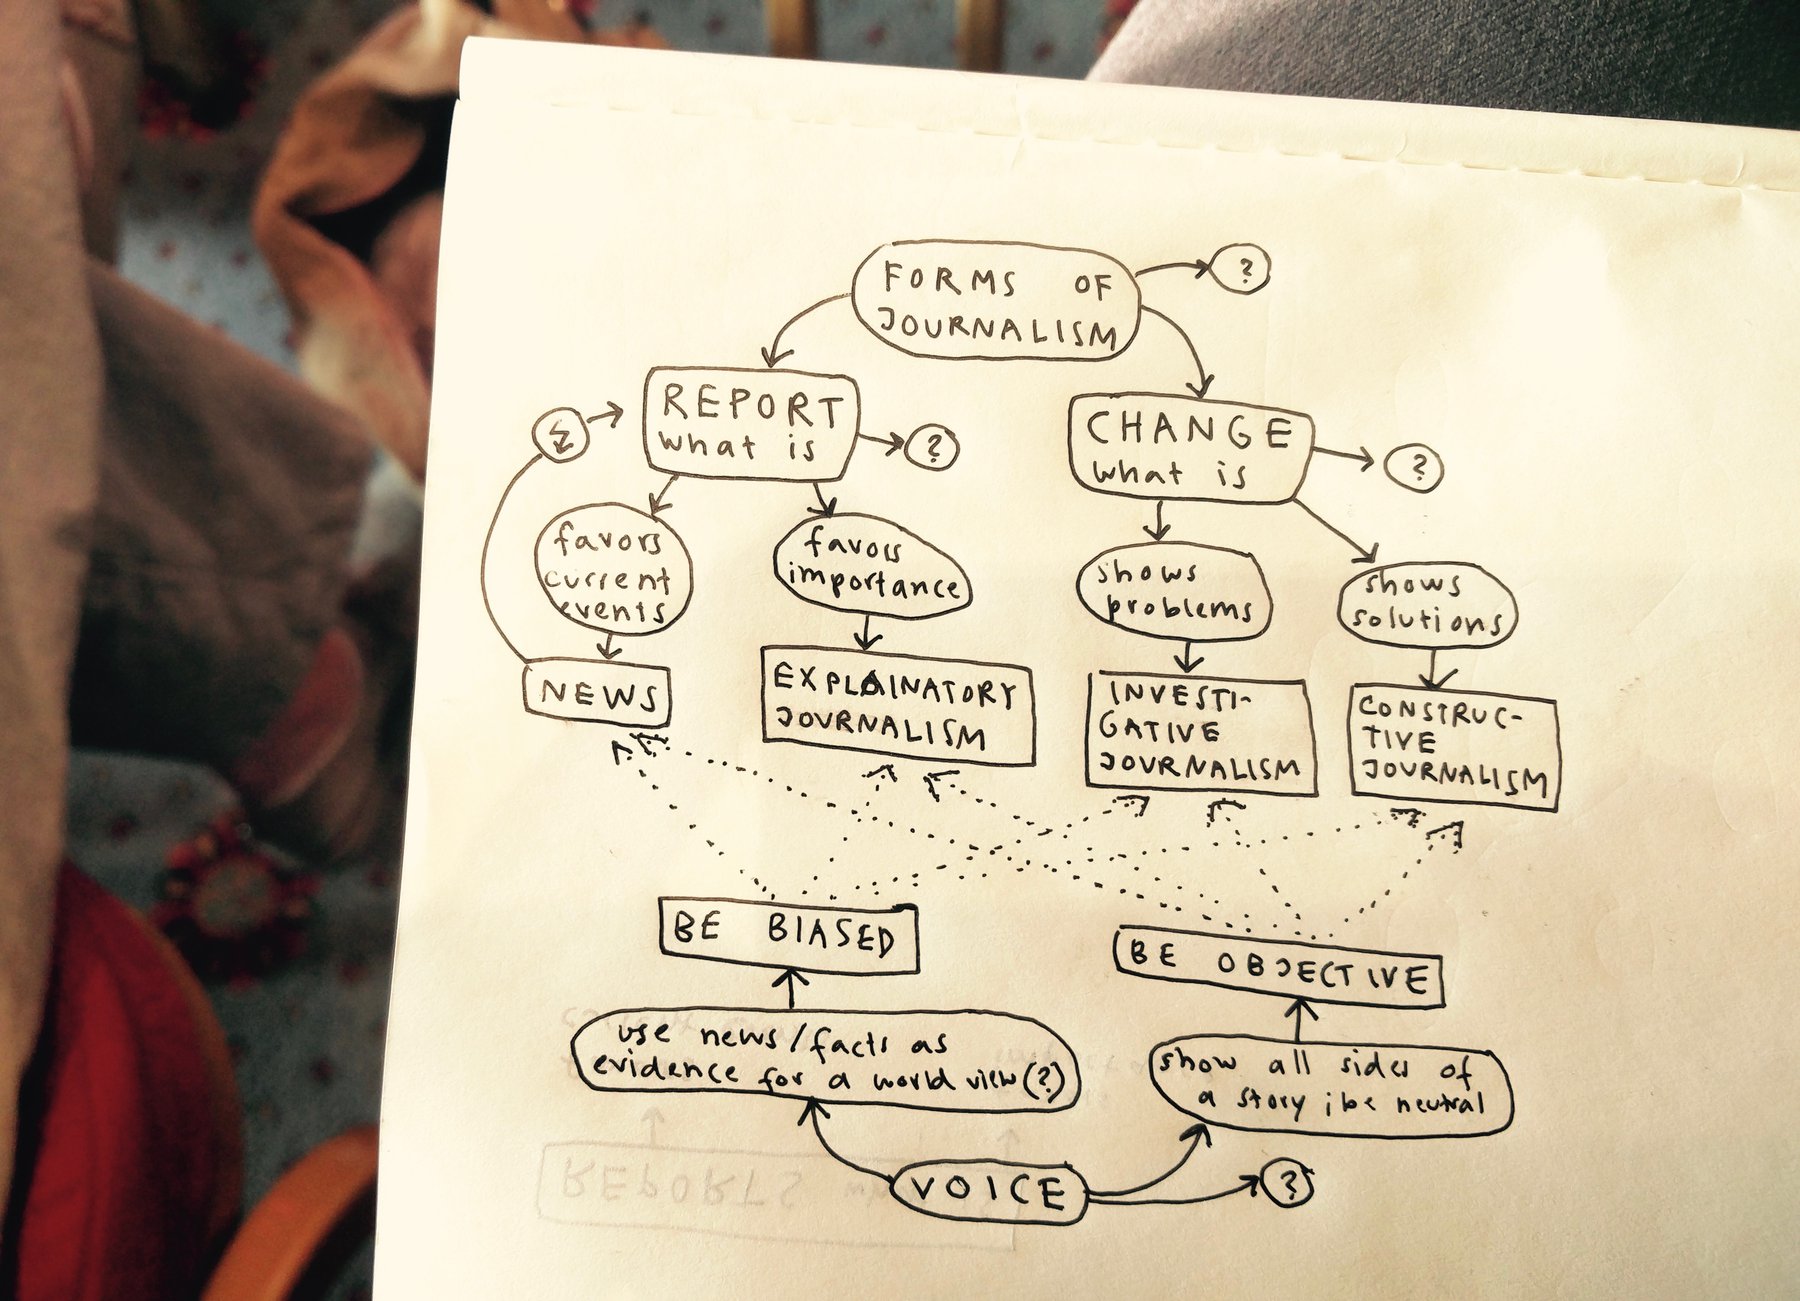 FORMS OF
JOURNALISM
?
REPORT
what is
?
CHANGE
what is
?
favors
current
events
favors
importance
shows
problems
shows
solutions
NEWS
EXPLAINATORY
JOURNALISM
INVESTI-
GATIVE
JOURNALISM
CONSTRUC-
TIVE
JOURNALISM
BE BIASED
BE OBJECTIVE
use news/facts as
evidence for a world view (?)
show all sides of
a story ; be neutral
VOICE
?
REPORTS